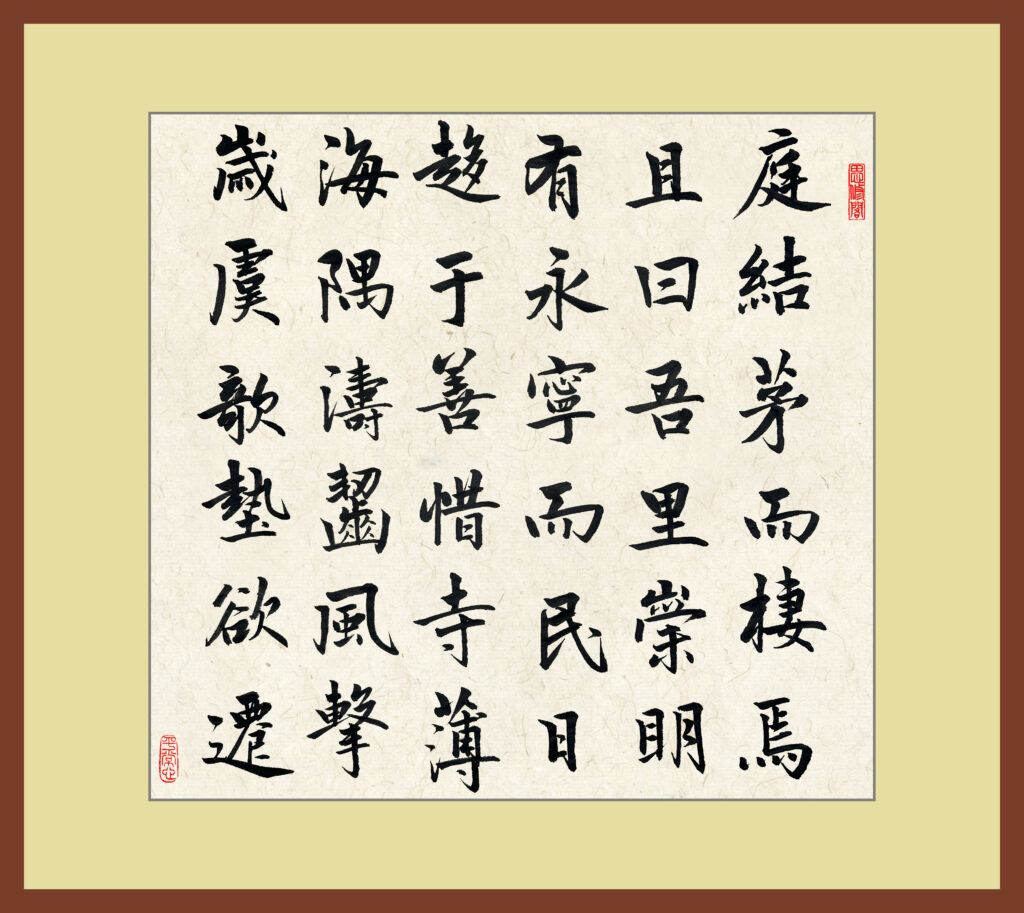 思修閣
庭結茅而棲焉
且曰吾里崇明
有永寧而民日
趍于善惜寺薄
海隅濤齧風擊
歲虞欹墊欲遷
平常心